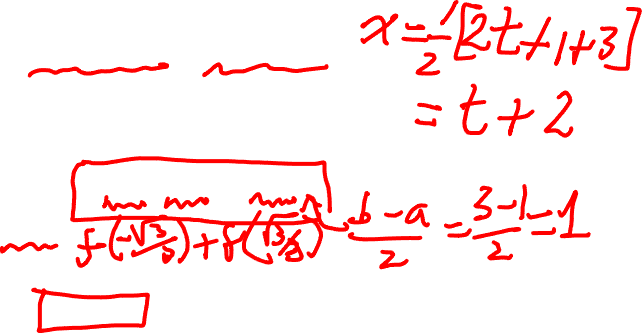 x = 1/2 [2t + 1 + 3]
= t + 2
f(-√3/5) + f(√3/5) b - a/2 = 3 - 1/2 = 1